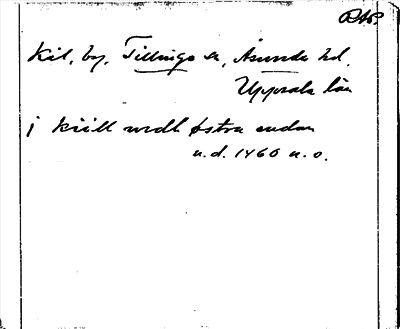 RAP.
Kil, by, Tillinge sn, Åsunda hd.
Uppsala län
j kiill vidh østra endan
u.d. 1460 u.o.